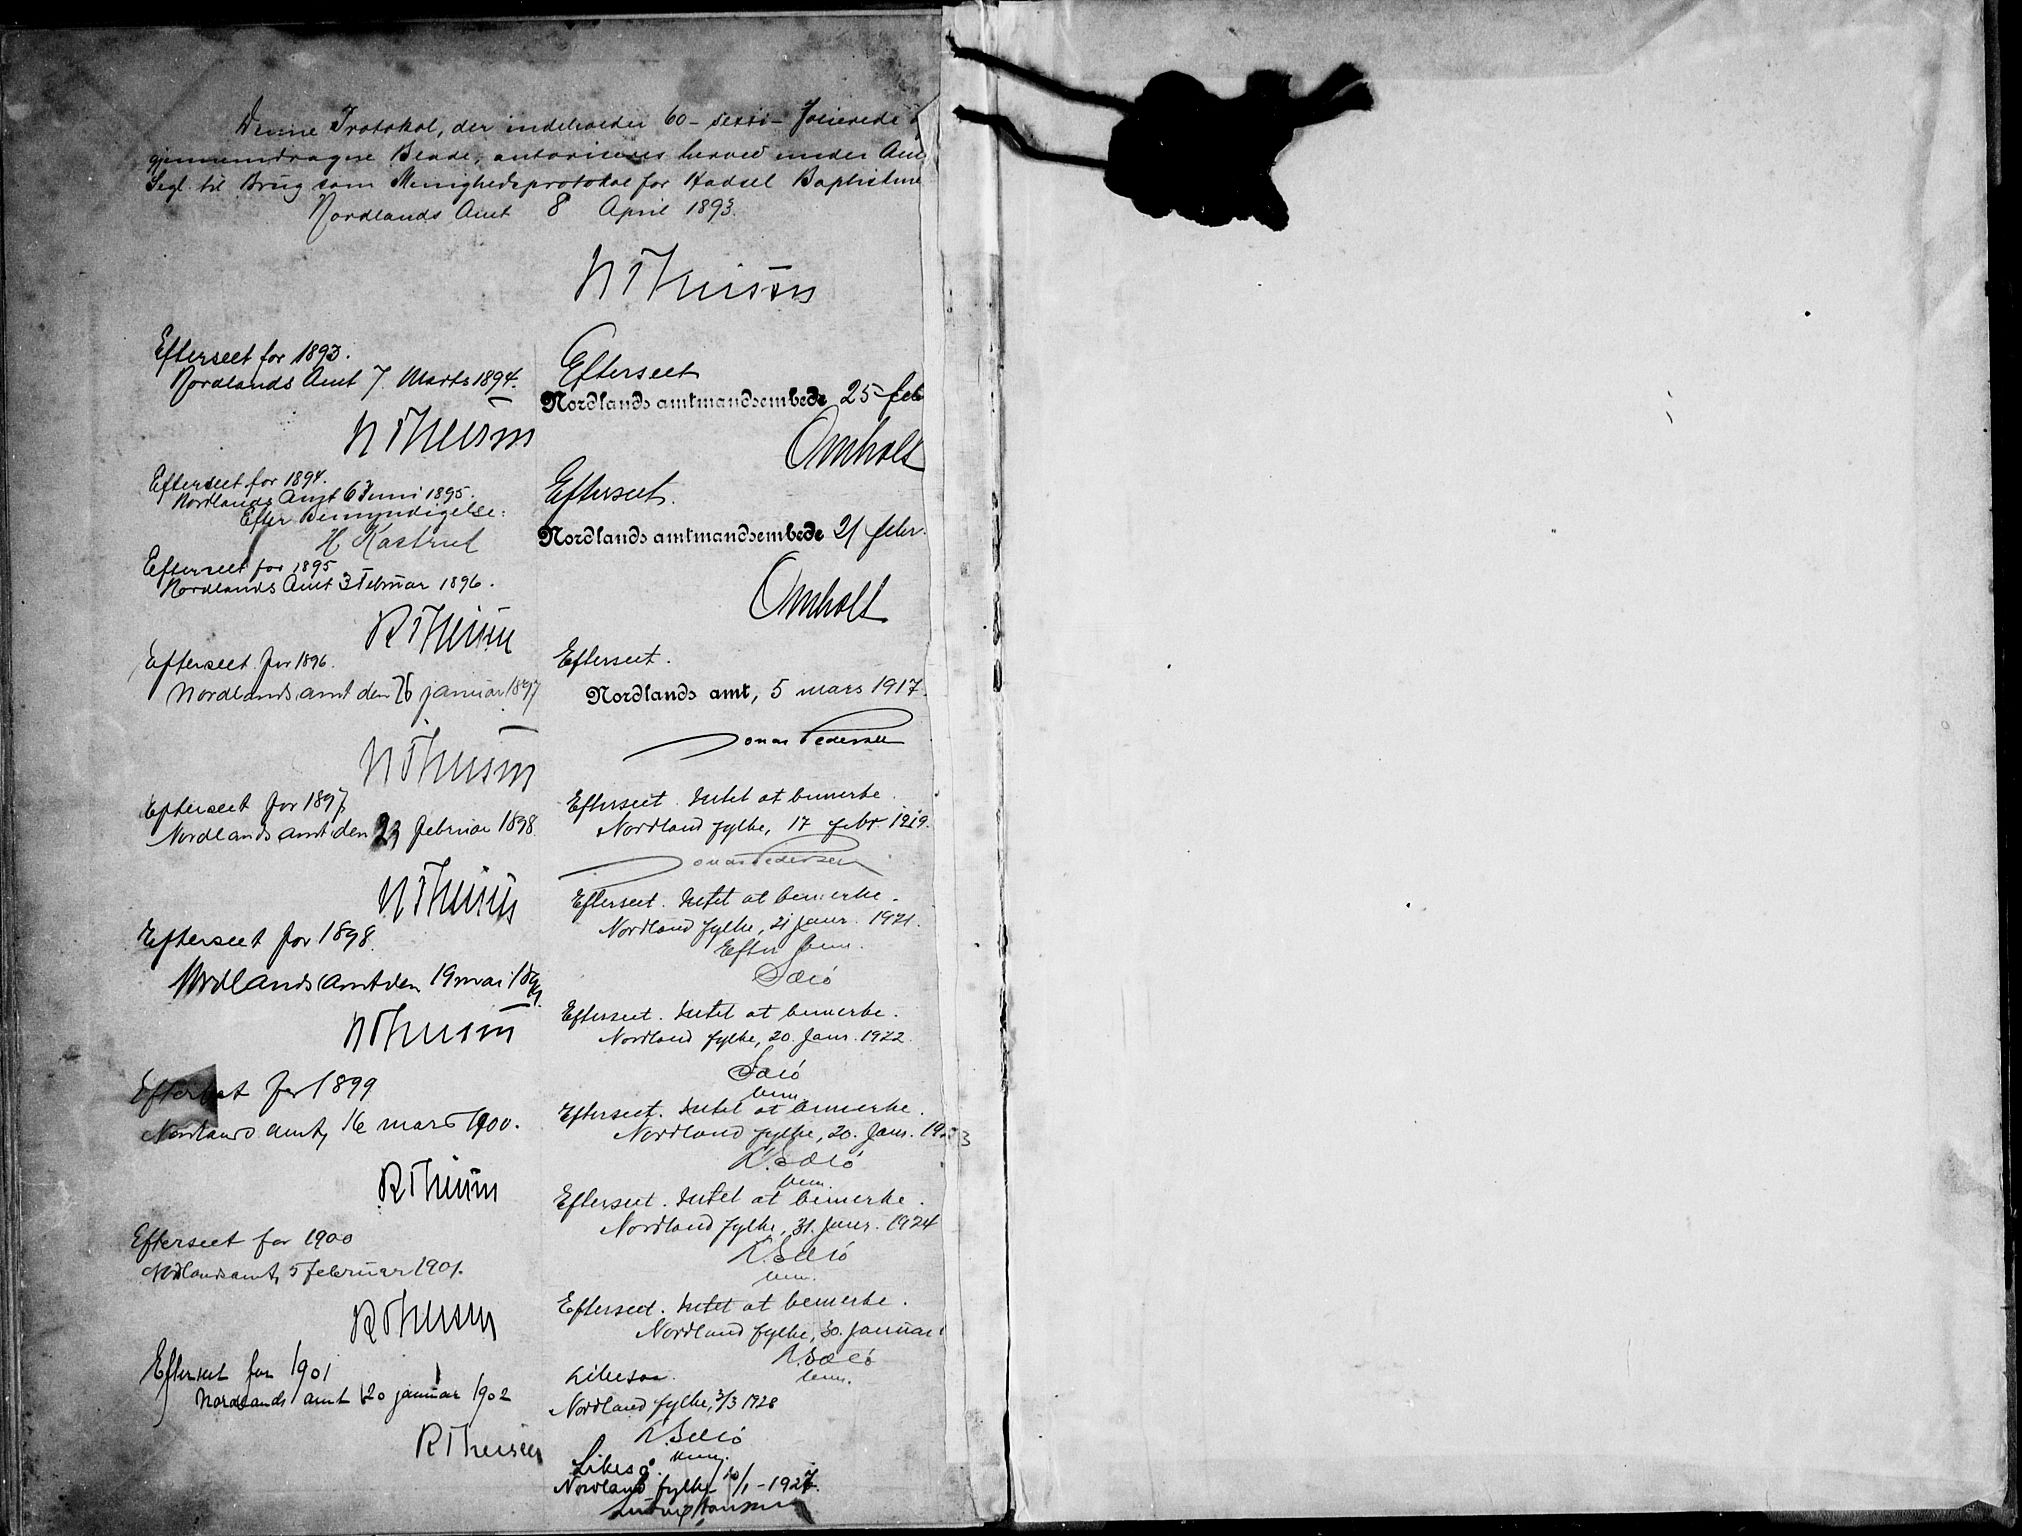 Denne Protokol, der indeholder 60 - sexti - folierede
gjennemdragne Blade, autoriseres herved under
Segl til Brug som Menighedsprotokol for Hadsel
Nordlands Amt 8 April 1893.
RTheisen
Efterseet for 1893.
Nordlands Amt 7. Marts 1894.
RTheisen
Efterseet for 1894.
Nordlands Amt 6 Juni 1895.
Efter Bemyndigelse:
H Kastrud
Efterseet for 1895
Nordlands Amt 3 Februar 1896.
RTheisen
Efterseet for 1896.
Nordlands amt den 26 januar 1897
RTheisen
Efterseet for 1897
Nordlands amt den februar 1898
RTheisen
Efterseet for 1898.
Nordlands amt den 19 mai
RTheisen
for 1899
Nordlands amt, 16 mars 1900.
RTheisen
Efterseet for 1900
Nordlands amt, 5 februar 1901.
RTheisen
Efterseet for 1901
Nordlands amt 20 januar 1902
RTheisen
Efterseet
Nordlands amtmandsembede 25 feb
Omholt
Efterseet.
Nordlands amtmandsembede 21 febr.
Omholt
Efterseet.
Nordlands amt, 5 mars 1917.
Jonas Pedersen
Efterseet. Intet at bemerke.
Nordland fylke, 17 febr. 1919.
Jonas Pedersen
Efterseet. Intet at bemerke.
Nordland fylke, 21 janr. 1921.
Efter bem.
Efterseet. Intet at bemerke.
Nordland fylke, 20. janr. 1922.
bem.
Efterseet. Intet at bemerke.
Nordland fylke, 20. janr.
bem.
Efterseet. Intet at bemerke.
Nordland fylke, 31. janr. 1924
bem.
Efterseet. Intet at bemerke.
Nordland fylke, 30. januar
bem.
Likesaa.
Nordland fylke,
Likeså.
Nordland fylke